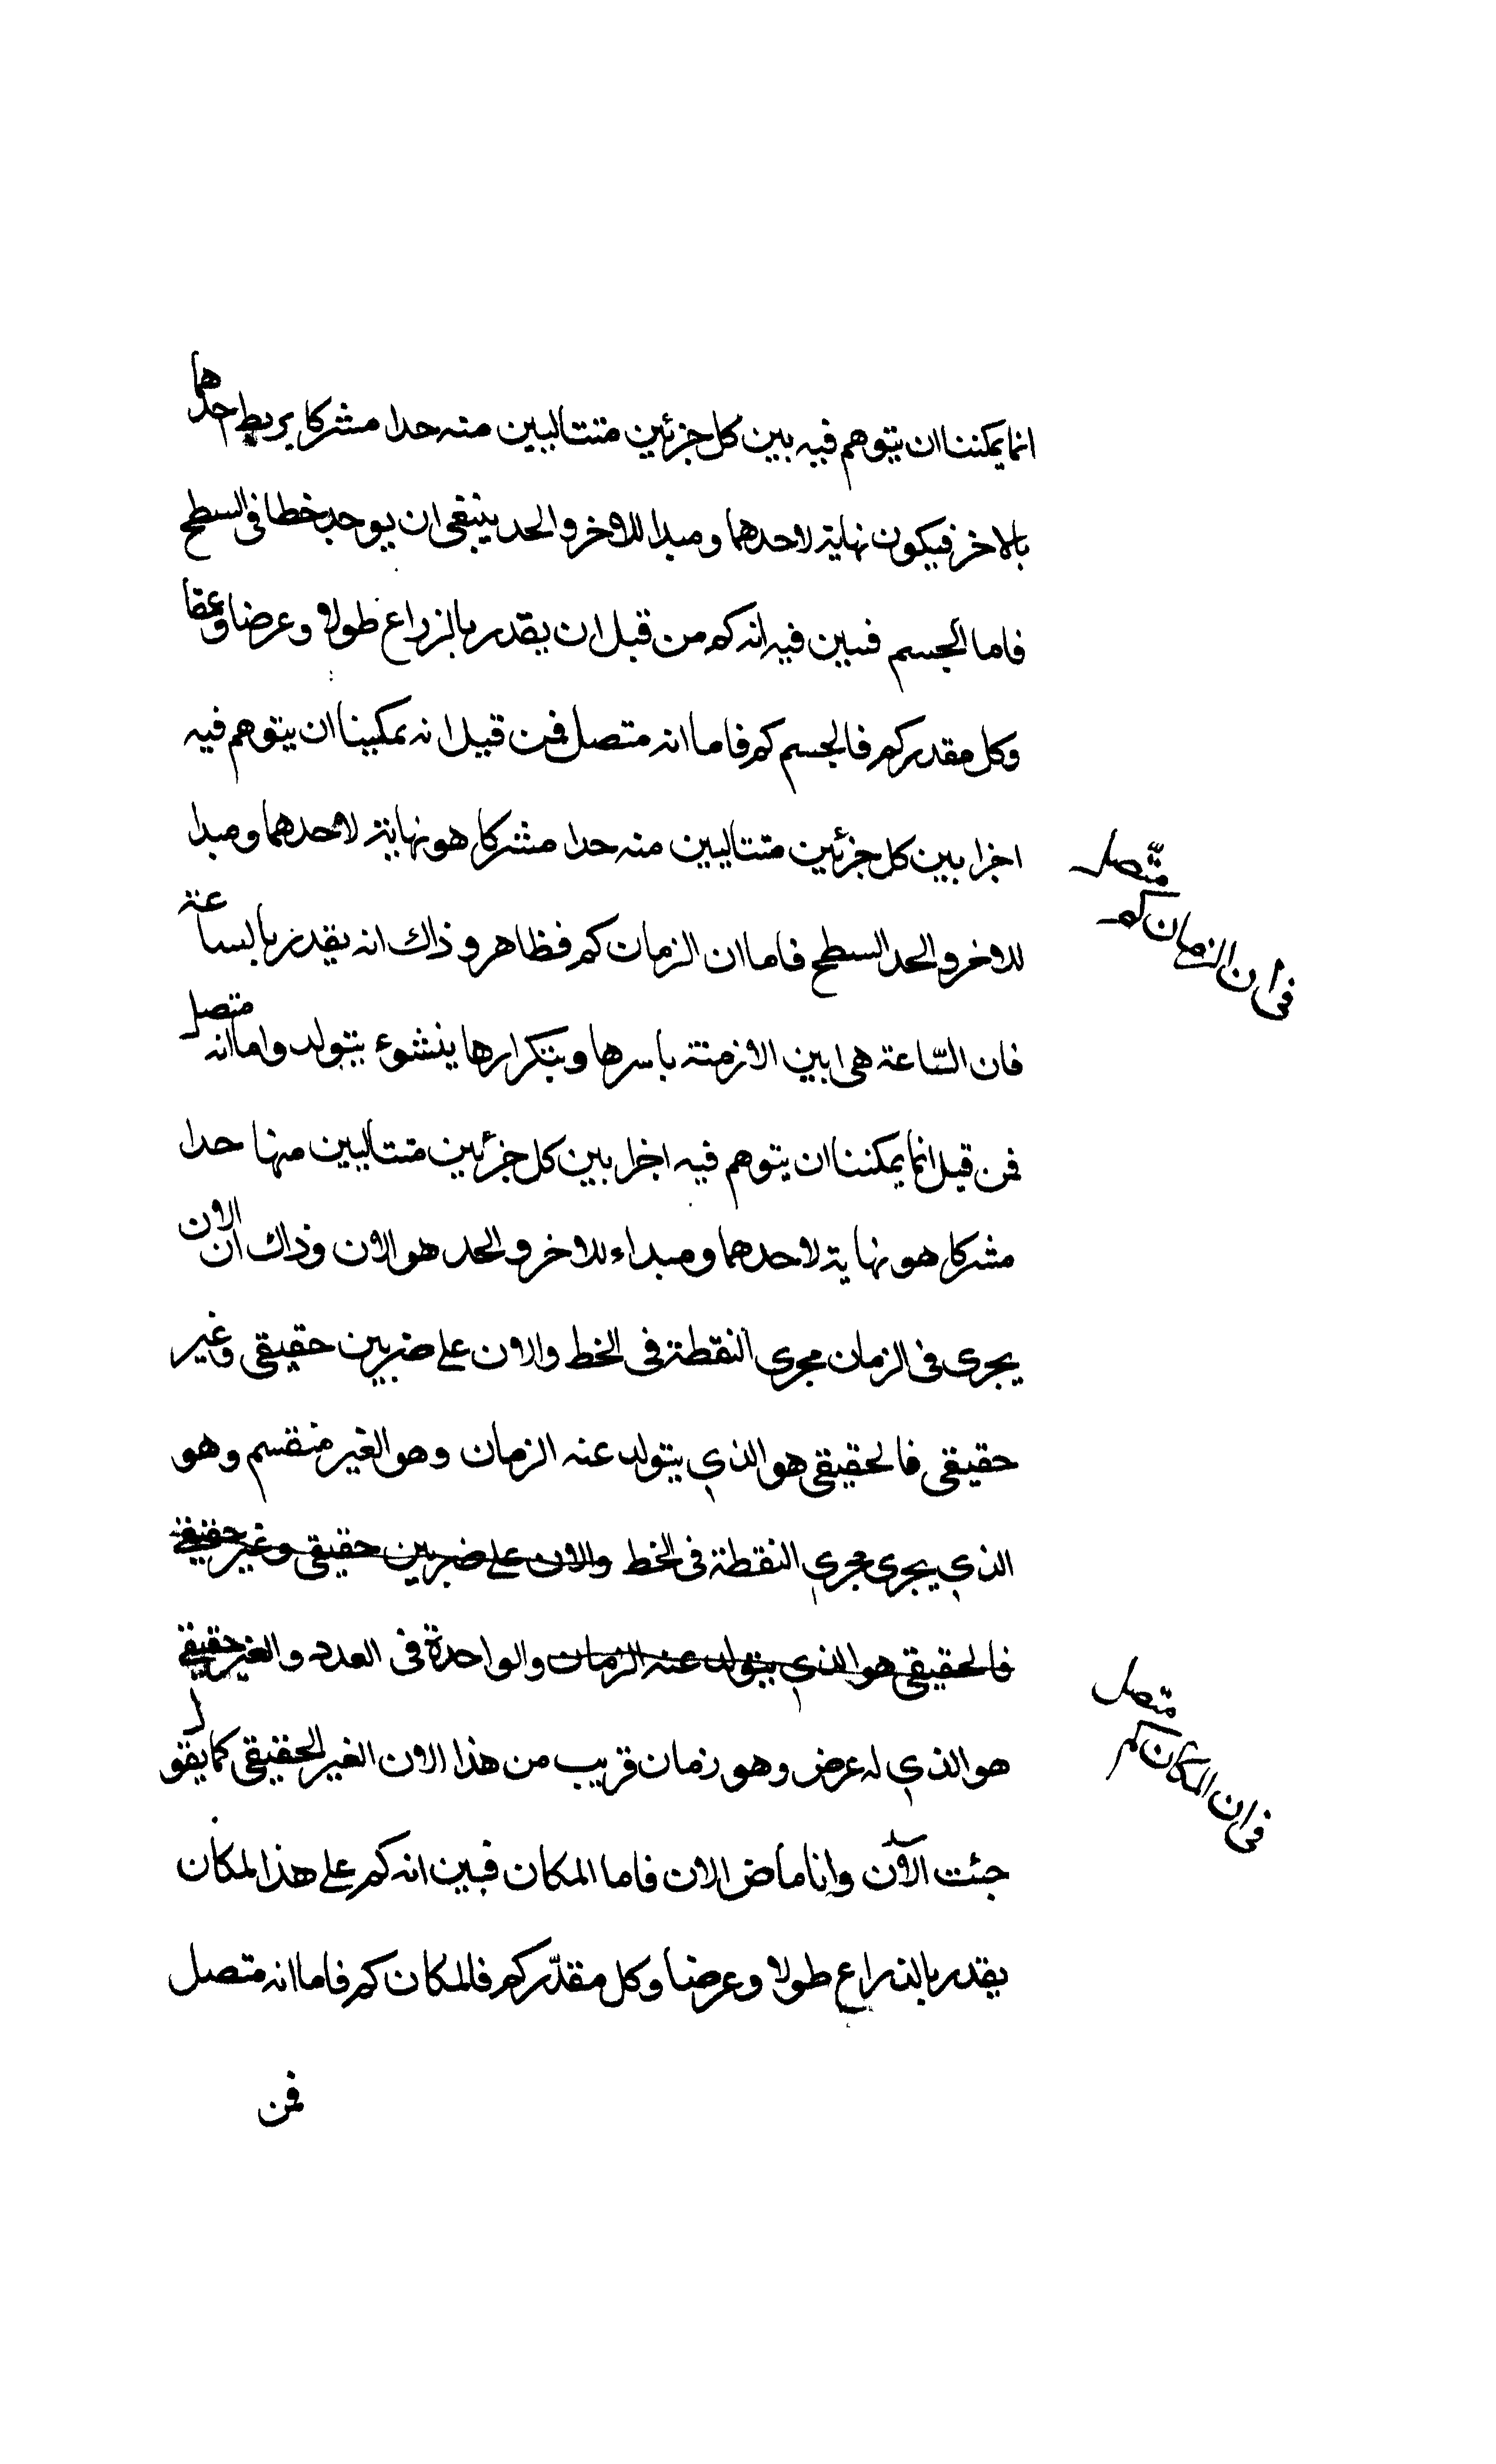 انما يمكننا ان يتوهم فيه بين كل جزئين متتاليين منه حدا مشركا يربط احدهما
بالاخر فيكون نهاية لاحدهما ومبدا للاخر والحد ينبغى ان يوجد خطا فى السطح
فاما الجسم فبين فيه انه كم من قبل ان يقدر بالزراع طولا وعرضا وعمقا
وكل مقدر كم فالجسم كم فاما انه متصل فمن قبل انه يمكننا ان يتوهم فيه
اجزا بين كل جزئين متتاليين منه حدا مشتركا هو نهاية لاحدهما ومبدا
للاخر والحد السطح فاما ان الزمان كم فظاهر وذاك انه يقدر بالساعة
فان السّاعة هى ابين الازمنة باسرها وبتكرارها ينشوء يتولد واما انه متصل
فمن قبل انما يمكننا ان يتوهم فيه اجزا بين كل جزئين متتاليين منها حدا
مشركا هو نهاية لاحدهما ومبداء للاخر والحد هو الان وذاك ان الان
يجرى فى الزمان مجرى النقطة فى الخط والان على ضربين حقيقى وغير
حقيقى فالحقيقى هو الذي يتولد عنه الزمان وهو الغير منقسم وهو
الذي يجرى مجري النقطة فى الخط والان على ضربين حقيقى وغير حقيقى
فالحقيقى هو الذي يتولد عنه الزمان والواحدة فى العدد والغير حقيقى
هو الذي له عرض وهو زمان قريب من هذا الان الغير الحقيقى كما يقول
جئت الآن وانا ماض الان فاما المكان فبين انه كم على هذا المكان
يقدر بالذراع طولا وعرضا وكل مقدّر كم فالمكان كم فاما انه متصل
فمن
فى ان الزمان كم
متّصل
فى ان المكان كم
متصل